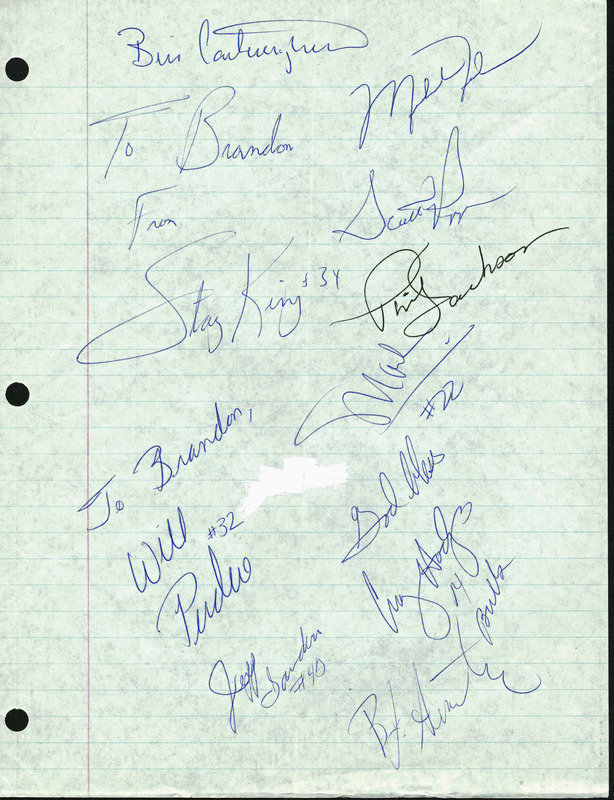 Bill Cartwright
To Brandon
From
Stacey King #34
Michael Jordan
Scottie Pippen
Phil Jackson
#22
To Brandon,
Will #32
Perdue
God Bless
Craig Hodges
14
Bulls
Jeff Sanders
#40
B.J. Armstrong